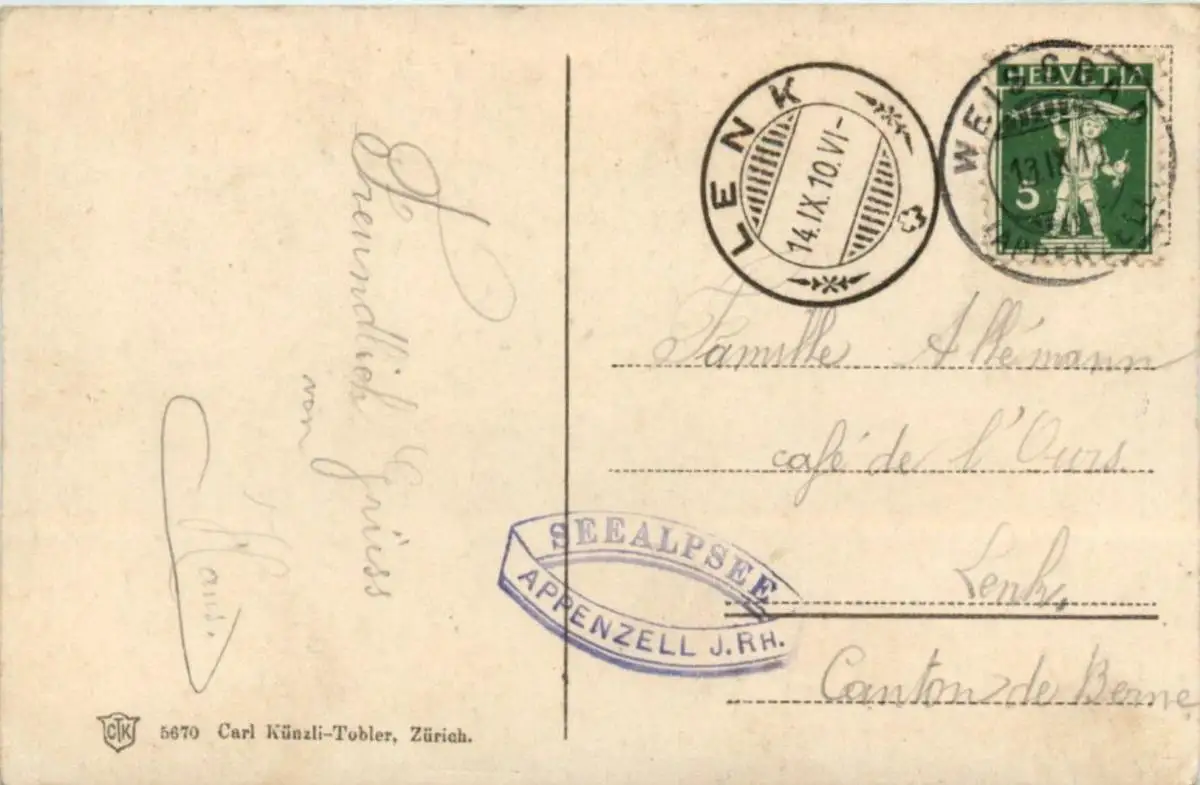 Freundlich Grüss
von
Hans.
LENK
14.IX.10.VI-
WEISSBAD
13.IX.10
APPENZELL
HELVETIA
5
Famille Allémann
café de l'Ours
Lenk,
Canton de Berne
SEEALPSEE
APPENZELL J.RH.
CTK
5670 Carl Künzli-Tobler, Zürich.